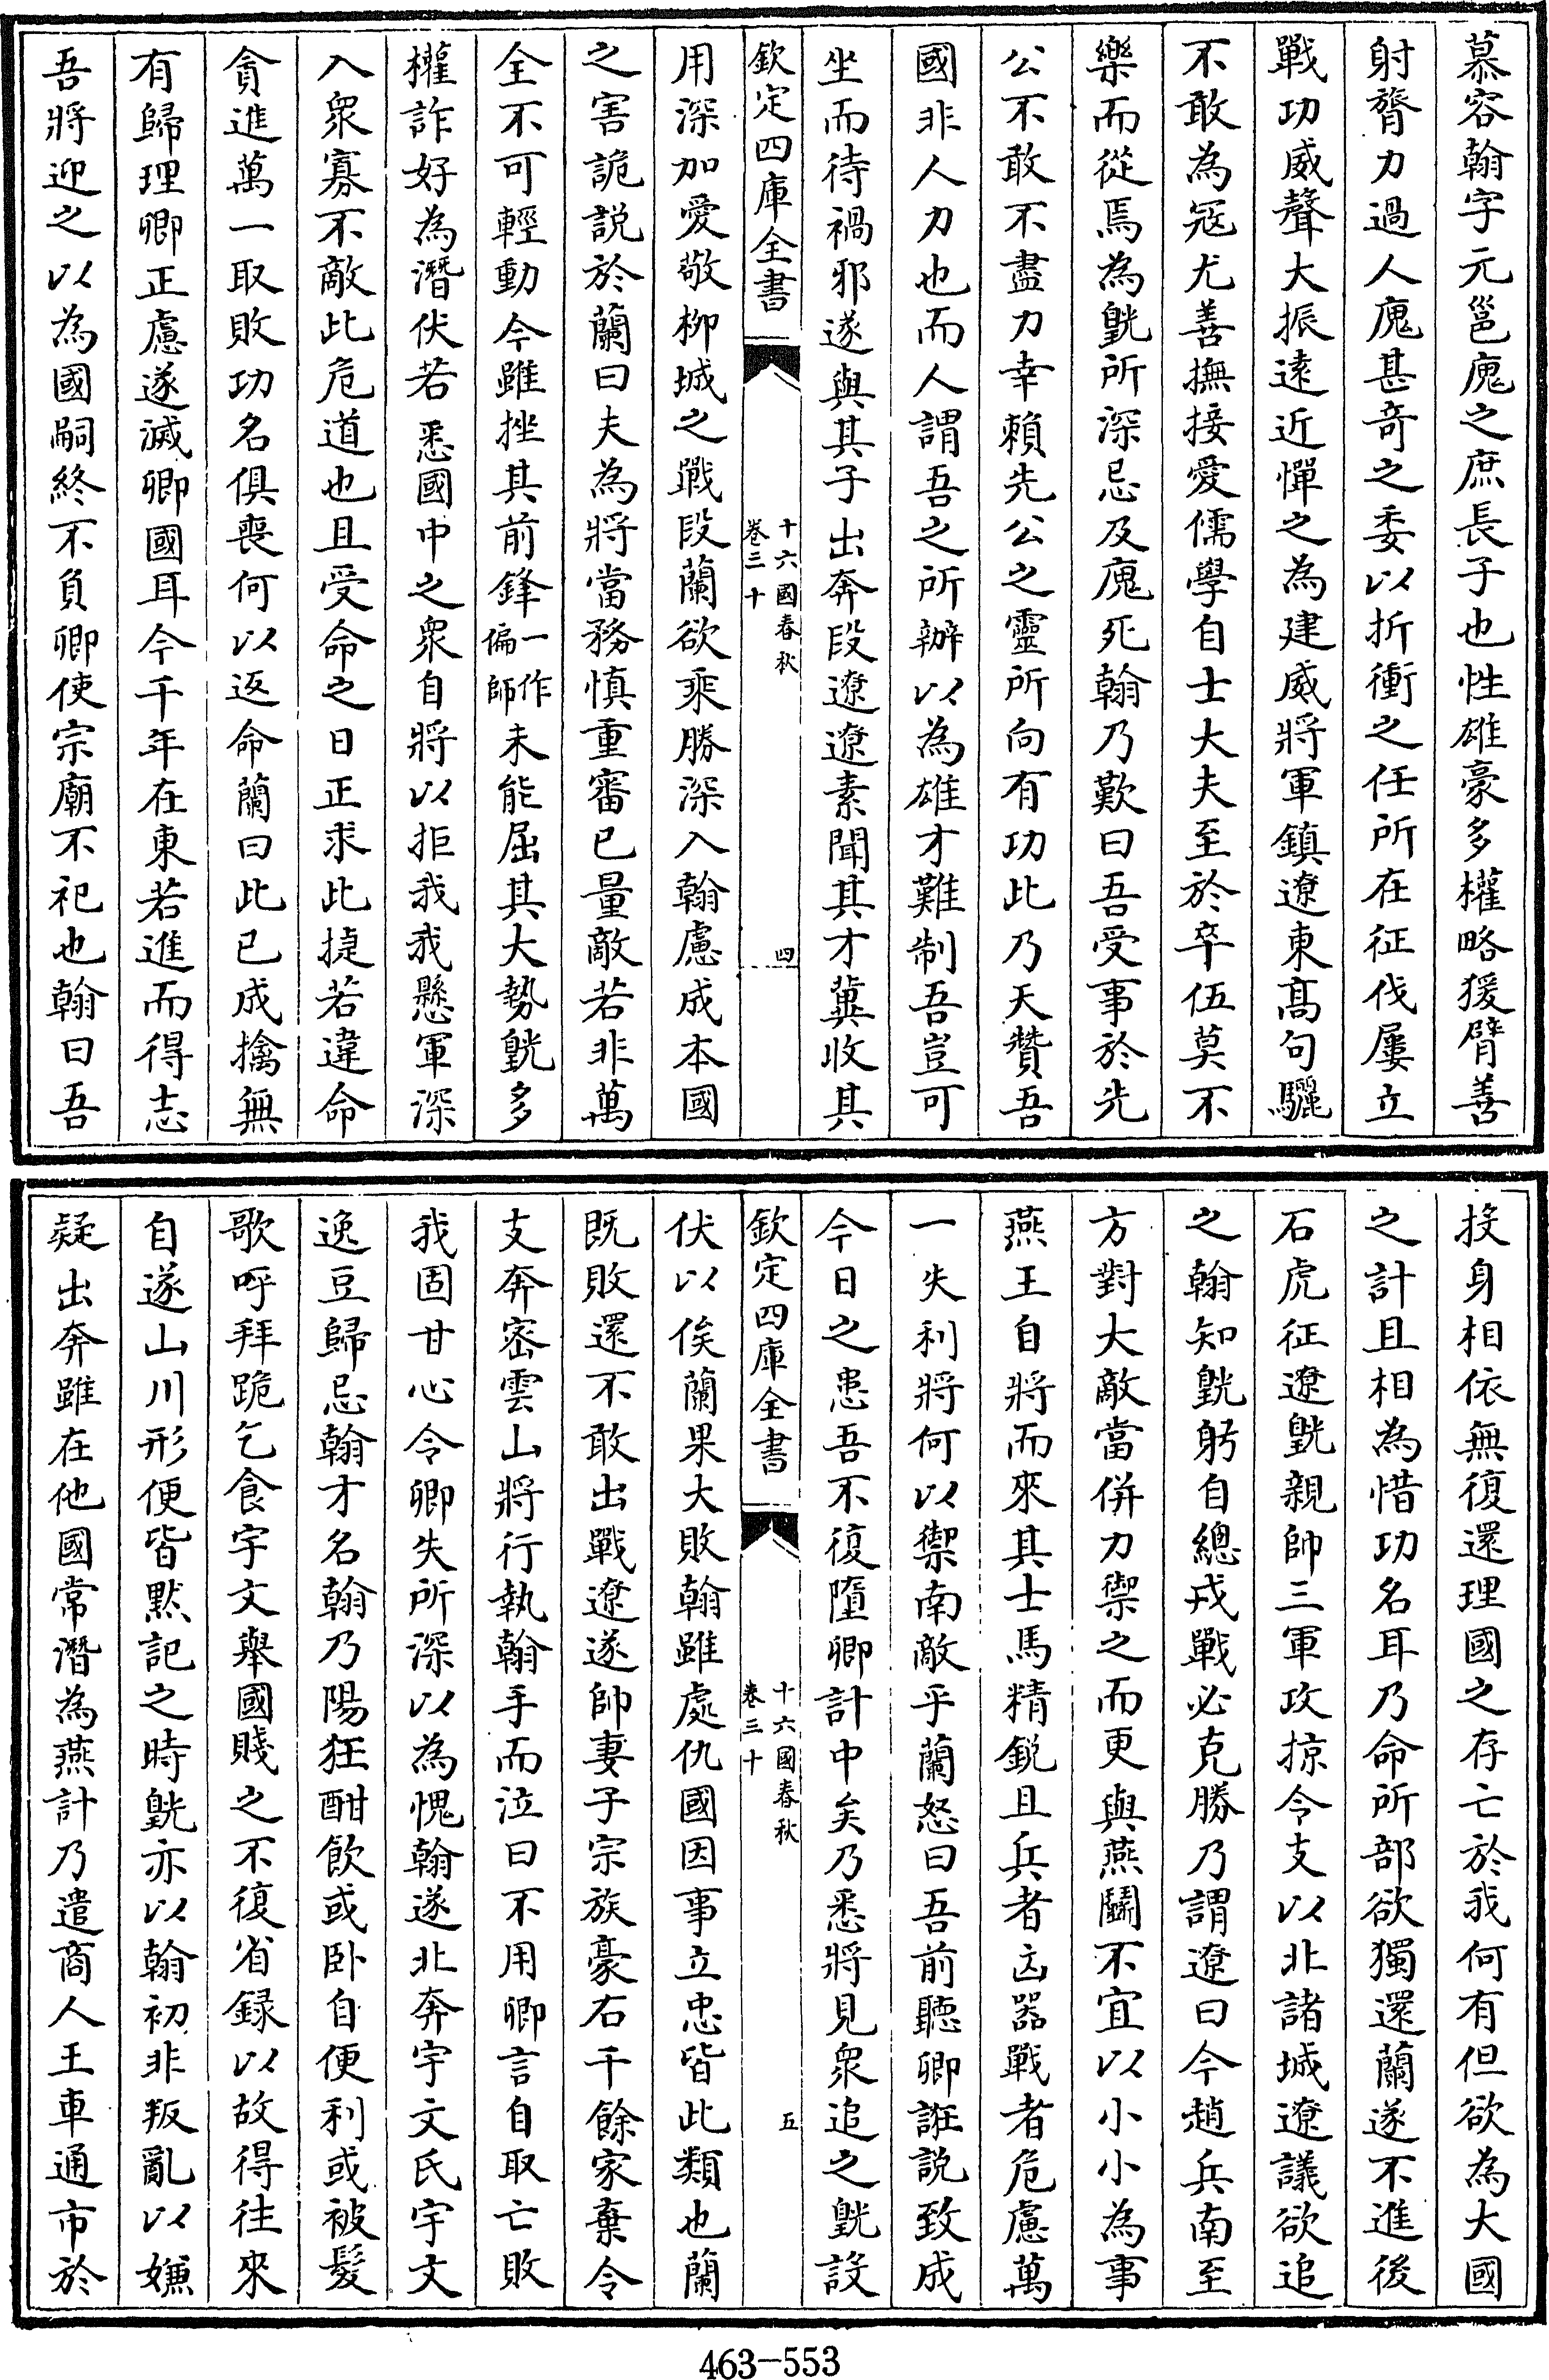 慕容翰字元邕廆之庶長子也性雄豪多權略猨臂善
射膂力過人廆甚奇之委以折衝之任所在征伐屢立
戰功威聲大振遠近憚之為建威將軍鎮遼東髙句驪
不敢為冦尤善撫接愛儒學自士大夫至於卒伍莫不
樂而從焉為皝所深忌及廆死翰乃歎曰吾受事於先
公不敢不盡力幸賴先公之靈所向有功此乃天贊吾
國非人力也而人謂吾之所辦以為雄才難制吾豈可
坐而待禍邪遂與其子出奔段遼遼素聞其才冀收其
欽定四庫全書
十六國春秋
卷三十
四
用深加愛敬柳城之戰段蘭欲乘勝深入翰慮成本國
之害詭説於蘭曰夫為將當務慎重審已量敵若非萬
全不可輕動今雖挫其前鋒一作偏師未能屈其大勢皝多
權詐好為潛伏若悉國中之衆自將以拒我我懸軍深
入衆寡不敵此危道也且受命之日正求此捷若違命
貪進萬一取敗功名俱喪何以返命蘭曰此已成擒無
有歸理卿正慮遂滅卿國耳今千年在東若進而得志
吾將迎之以為國嗣終不負卿使宗廟不祀也翰曰吾
投身相依無復還理國之存亡於我何有但欲為大國
之計且相為惜功名耳乃命所部欲獨還蘭遂不進後
石虎征遼皝親帥三軍攻掠令支以北諸城遼議欲追
之翰知皝躬自總戎戰必克勝乃謂遼曰今趙兵南至
方對大敵當併力禦之而更與燕鬭不宜以小小為事
燕王自將而來其士馬精鋭且兵者凶器戰者危慮萬
一失利將何以禦南敵乎蘭怒曰吾前聽卿誑説致成
今日之患吾不復墮卿計中矣乃悉將見衆追之皝設
欽定四庫全書
十六國春秋
卷三十
五
伏以俟蘭果大敗翰雖處仇國因事立忠皆此類也蘭
既敗還不敢出戰遼遂帥妻子宗族豪右千餘家棄令
支奔宻雲山將行執翰手而泣曰不用卿言自取亡敗
我固甘心令卿失所深以為愧翰遂北奔宇文氏宇文
逸豆歸忌翰才名翰乃陽狂酣飲或卧自便利或被髮
歌呼拜跪乞食宇文舉國賤之不復省録以故得往來
自遂山川形便皆黙記之時皝亦以翰初非叛亂以嫌
疑出奔雖在他國常潛為燕計乃遣商人王車通市於
463-553